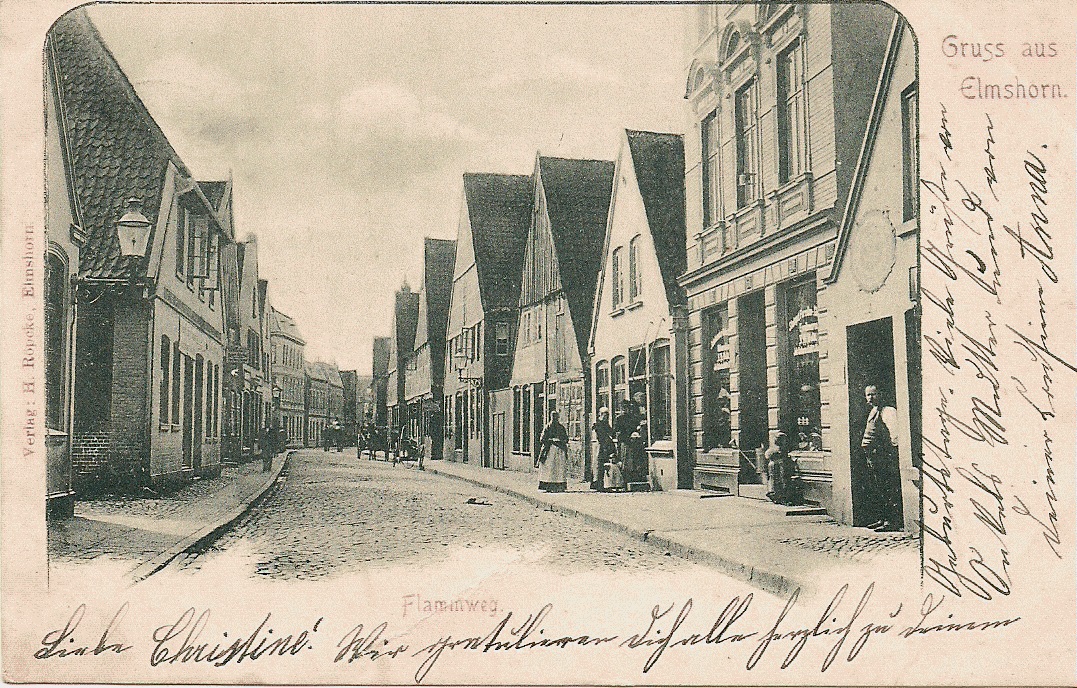 Gruss aus
Elmshorn.
Verlag: H. Röpcke, Elmshorn.
Flammweg.
Liebe Christine! Wir gratulieren Dich alle herzlich zu deinem
Geburtstage. Viele Grüße von
Mutter und von
deiner Anna.